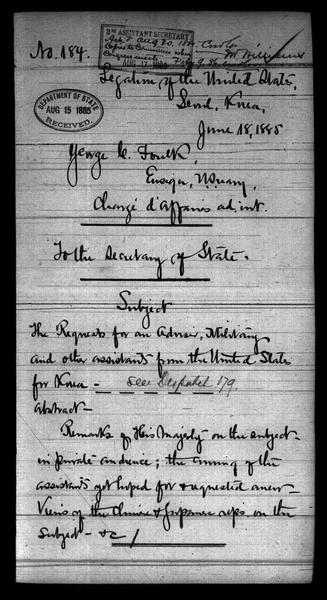 No. 184.
3RD ASSISTANT SECRETARY
Legation of the United States,
Seoul, Korea,
DEPARTMENT OF STATE
AUG 15 1885
RECEIVED.
June 18, 1885
George C. Foulk,
Ensign, U.S. Navy,
Chargé d'Affaires ad. int.
To the Secretary of State.
Subject
The Requests for an Adviser, Military
and other assistants from the United States
for Korea – see Despatch 179.
Abstract –
Remarks of His Majesty on the subject
in private audience; the coming of the
assistants yet hoped for & requested anew –
Views of the Chinese & Japanese reps. on the
Subject – &c /